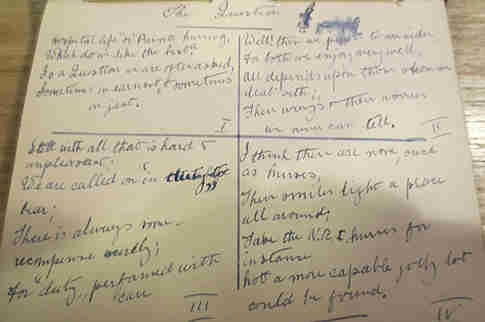 The Question
Hospital life or Private nursing,
Which do we like the best?
Is a Question we are often asked,
Sometimes in earnest & sometimes
in jest.
I
Well! then we have to consider
For both we enjoy very well,
All depends upon those whom we
deal with;
Their ways & their worries
we never can tell.
II
Still with all that is hard &
unpleasant,
We are called on in
bear;
There is always some
recompense
For "duty" performed with
care
III
I think there are none, such
as Nurses,
Their smiles light a place
all around,
Take the N.R.I. nurses for
instance
Not a more capable jolly lot
could be found.
IV